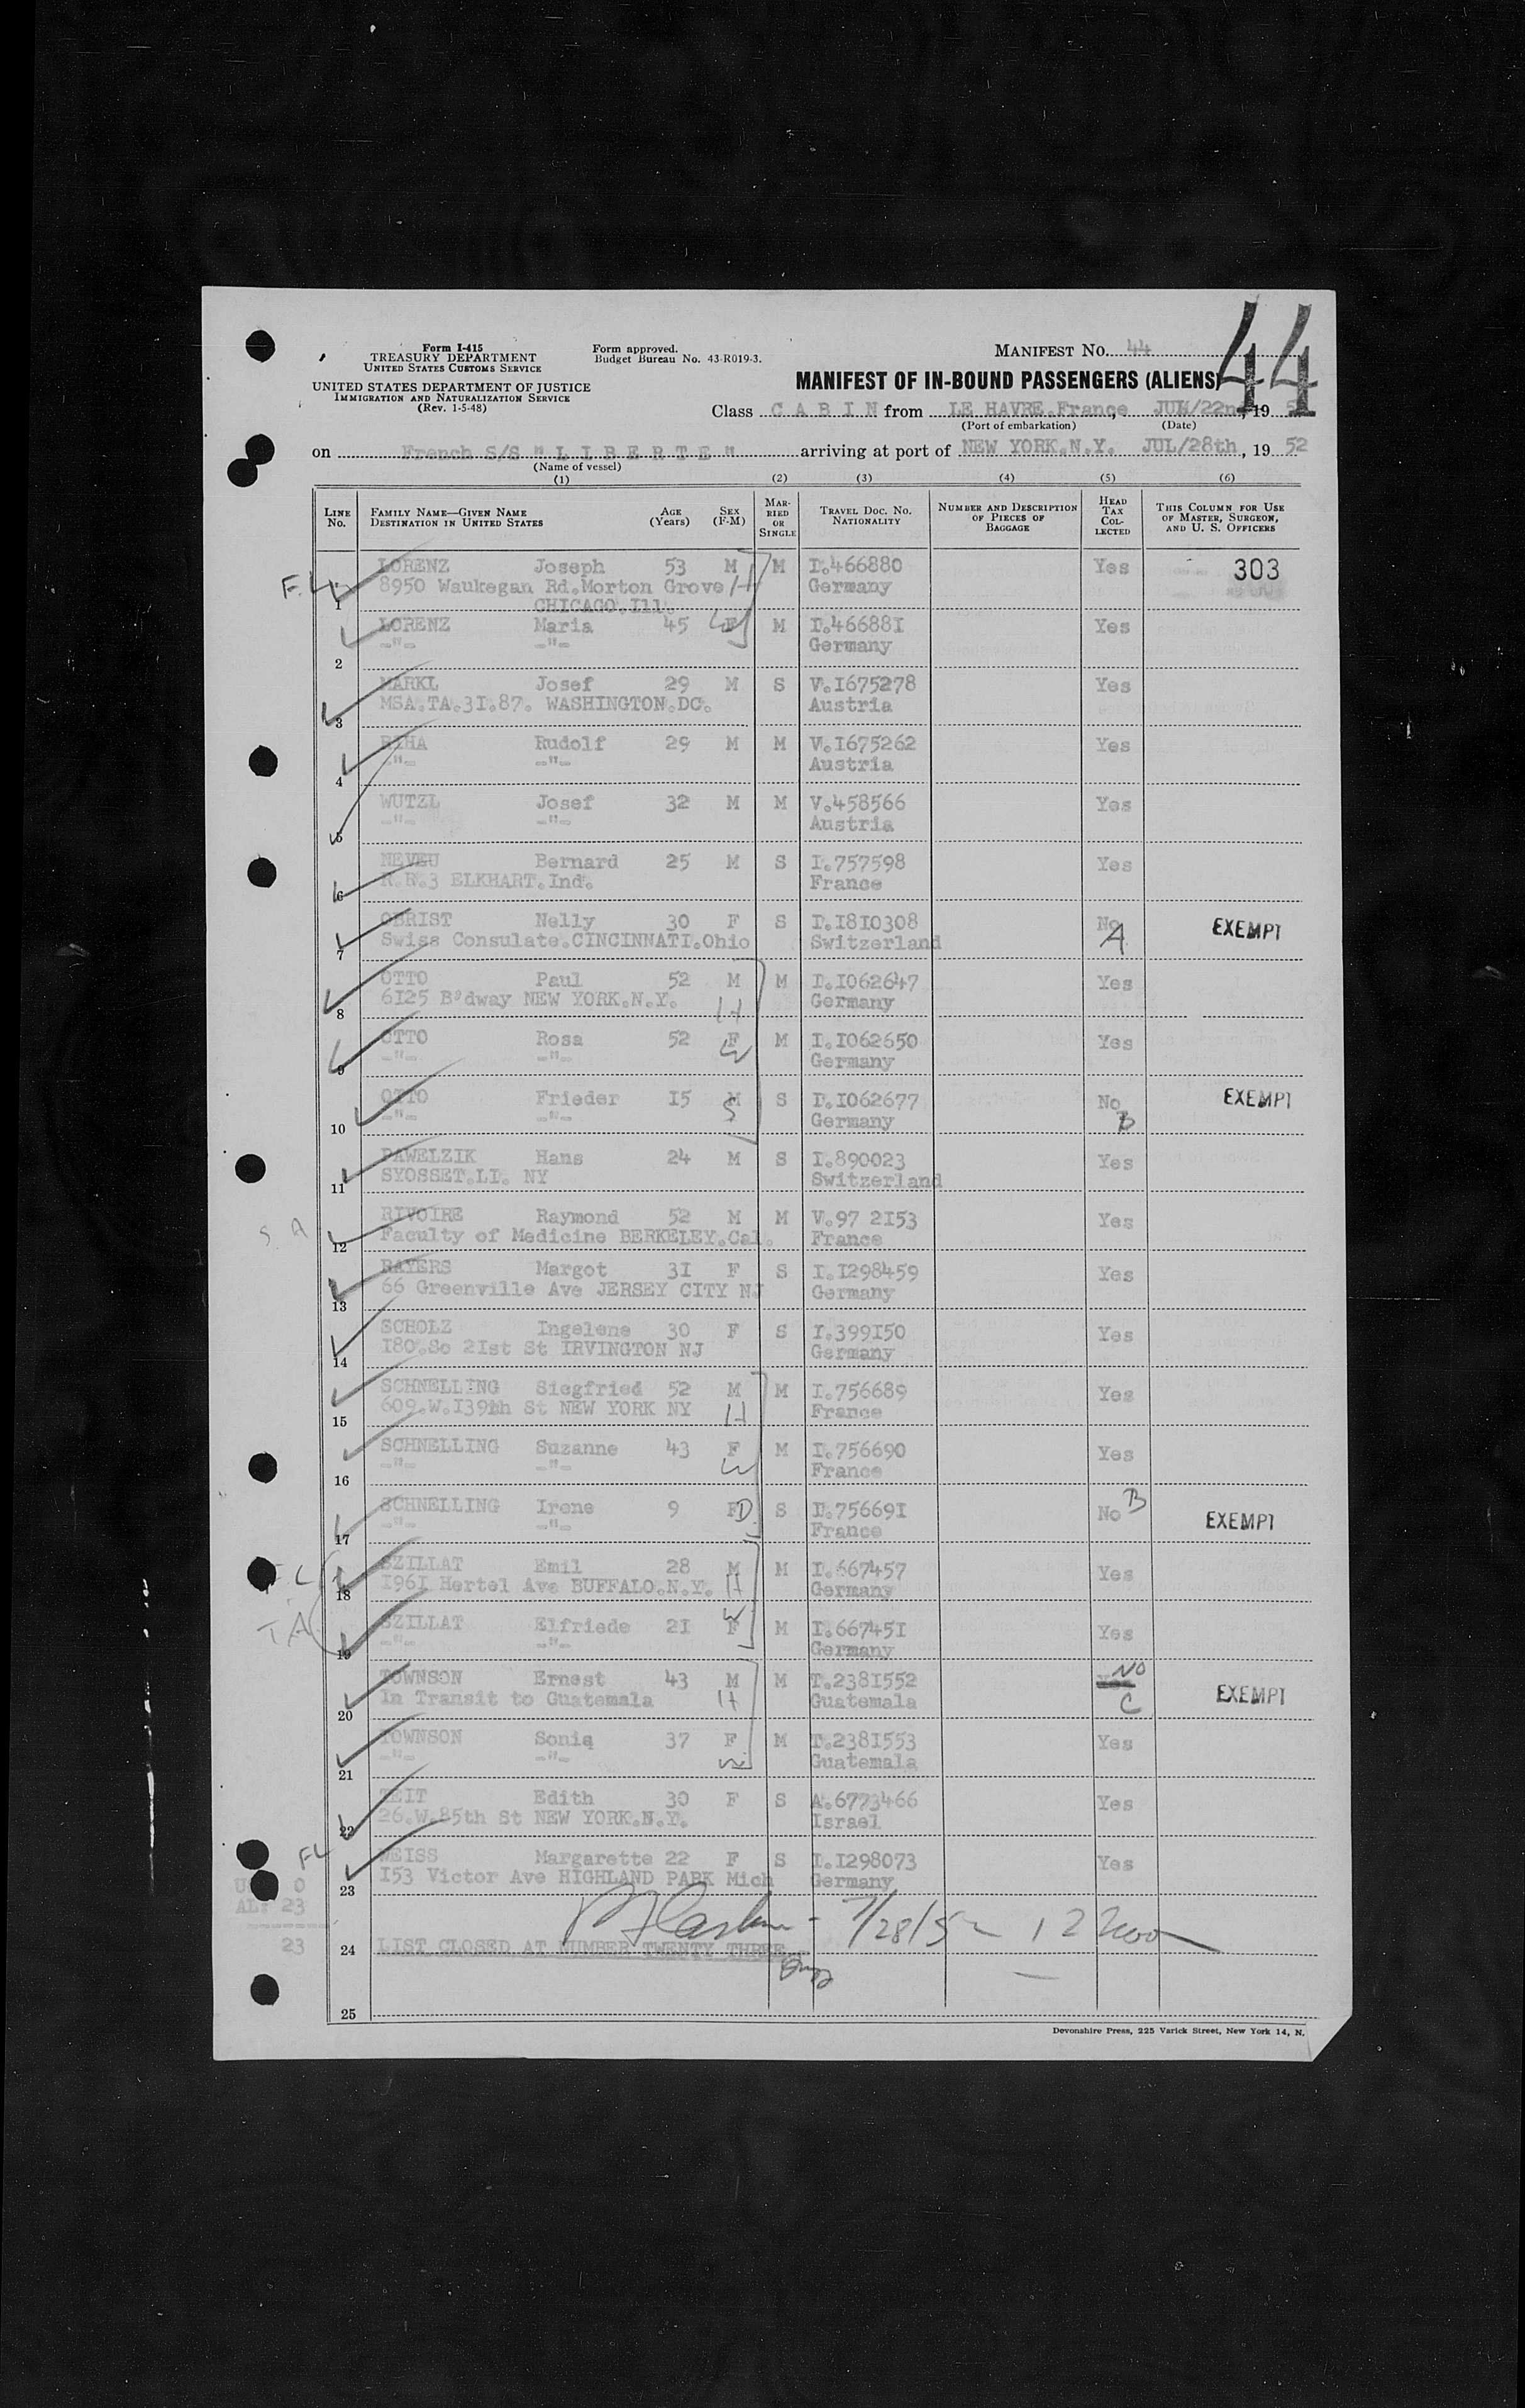 Form I-415
TREASURY DEPARTMENT
UNITED STATES CUSTOMS SERVICE
UNITED STATES DEPARTMENT OF JUSTICE
IMMIGRATION AND NATURALIZATION SERVICE
(Rev. 1-5-48)
Form approved.
Budget Bureau No. 43-R019-3.
MANIFEST No. 44
44
MANIFEST OF IN-BOUND PASSENGERS (ALIENS)
Class C A B I N from LE HAVRE.France, JUL/22nd, 19 52
(Port of embarkation) (Date)
on French S/S "L I B E R T E" arriving at port of NEW YORK.N.Y. JUL/28th, 19 52
(Name of vessel)
(1) (2) (3) (4) (5) (6)
LINE No. FAMILY NAME—GIVEN NAME DESTINATION IN UNITED STATES AGE (Years) SEX (F-M) MARRIED OR SINGLE TRAVEL DOC. NO. NATIONALITY NUMBER AND DESCRIPTION OF PIECES OF BAGGAGE HEAD TAX COLLECTED THIS COLUMN FOR USE OF MASTER, SURGEON, AND U. S. OFFICERS
LORENZ Joseph 53 M M I.466880 Yes 303
8950 Waukegan Rd.Morton Grove H Germany
1 CHICAGO.Ill.
LORENZ Maria 45 F W M I.466881 Yes
-"- -"- Germany
2
MARKL Josef 29 M S V.I675278 Yes
MSA.TA.3I.87. WASHINGTON.DC. Austria
3
RIHA Rudolf 29 M M V.I675262 Yes
-"- -"- Austria
4
WUTZL Josef 32 M M V.458566 Yes
-"- -"- Austria
5
NEVEU Bernard 25 M S I.757598 Yes
R.R.3 ELKHART.Ind. France
6
OBRIST Nelly 30 F S I.I8I0308 No A EXEMPT
Swiss Consulate.CINCINNATI.Ohio Switzerland
7
OTTO Paul 52 M M I.I062647 Yes
6I25 B'dway NEW YORK.N.Y. H Germany
8
OTTO Rosa 52 F W M I.I062650 Yes
-"- -"- Germany
9
OTTO Frieder I5 M S S I.I062677 No B EXEMPT
-"- -"- Germany
10
PAWELZIK Hans 24 M S I.890023 Yes
SYOSSET.LI. NY Switzerland
11
RIVOIRE Raymond 52 M M V.97 2I53 Yes
Faculty of Medicine BERKELEY.Cal. France
12
BAYERS Margot 3I F S I.I298459 Yes
66 Greenville Ave JERSEY CITY NJ Germany
13
SCHOLZ Ingelene 30 F S I.399I50 Yes
I80.So 2Ist St IRVINGTON NJ Germany
14
SCHNELLING Siegfried 52 M M I.756689 Yes
609.W.I39th St NEW YORK NY H France
15
SCHNELLING Suzanne 43 F W M I.756690 Yes
-"- -"- France
16
SCHNELLING Irene 9 F D S I.75669I No B EXEMPT
-"- -"- France
17
SZILLAT Emil 28 M M I.667457 Yes
I96I Hertel Ave BUFFALO.N.Y. H Germany
18
SZILLAT Elfriede 2I F W M I.66745I Yes
-"- -"- Germany
19
TOWNSON Ernest 43 M M T.238I552 NO C EXEMPT
In Transit to Guatemala H Guatemala
20
TOWNSON Sonia 37 F W M T.238I553 Yes
-"- -"- Guatemala
21
Edith 30 F S A.6773466 Yes
26.W.85th St NEW YORK.N.Y. Israel
22
WEISS Margarette 22 F S I.I298073 Yes
I53 Victor Ave HIGHLAND PARK Mich Germany
23
0
AL: 23
23
7/28/52 12 noon
24 LIST CLOSED AT NUMBER TWENTY THREE
25
Devonshire Press, 225 Varick Street, New York 14, N.